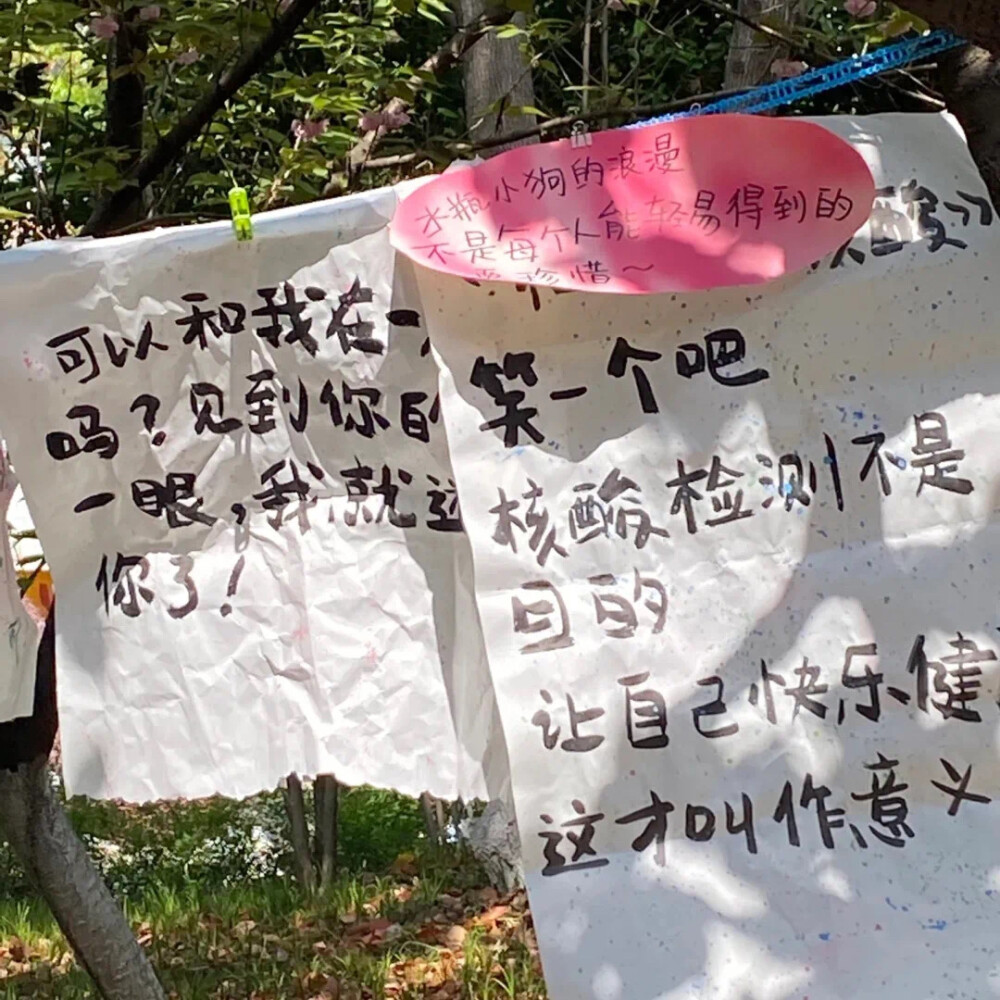 可以和我在一
吗？见到你的
一眼，我就这
你了！
水瓶小狗的浪漫
不是每个人能轻易得到的
要珍惜～
酸》
笑一个吧
核酸检测不是
目的
让自己快乐健
这才叫作意义